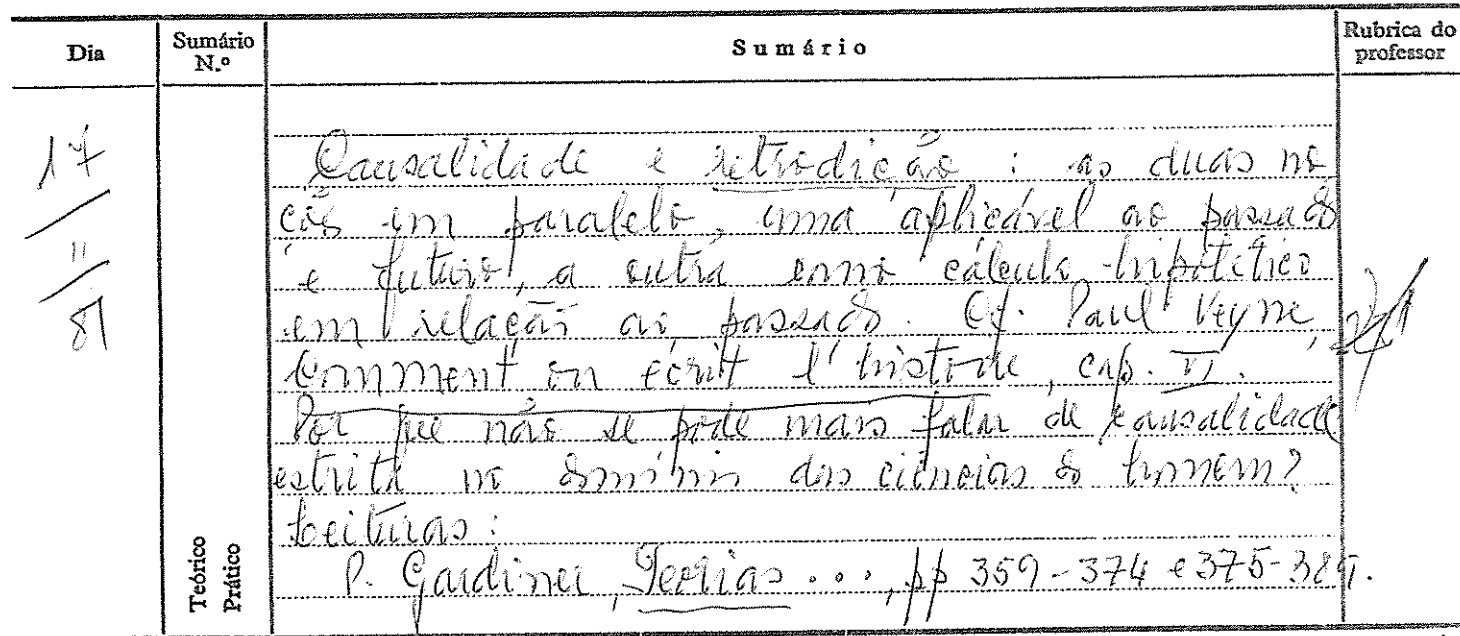 Dia
Sumário N.º
Sumário
Rubrica do professor
17
11
81
Causalidade e retrodição : as duas no
ções em paralelo, uma aplicável ao passado
e futuro, a outra como cálculo hipotético
em relação ao passado. Cf. Paul Veyne,
Comment on écrit l'histoire, cap. VI.
Por que não se pode mais falar de causalidade
estrita no domínio das ciências do homem?
Leituras:
P. Gardiner, Teorias ..., pp 359-374 e 375-
Teórico
Prático